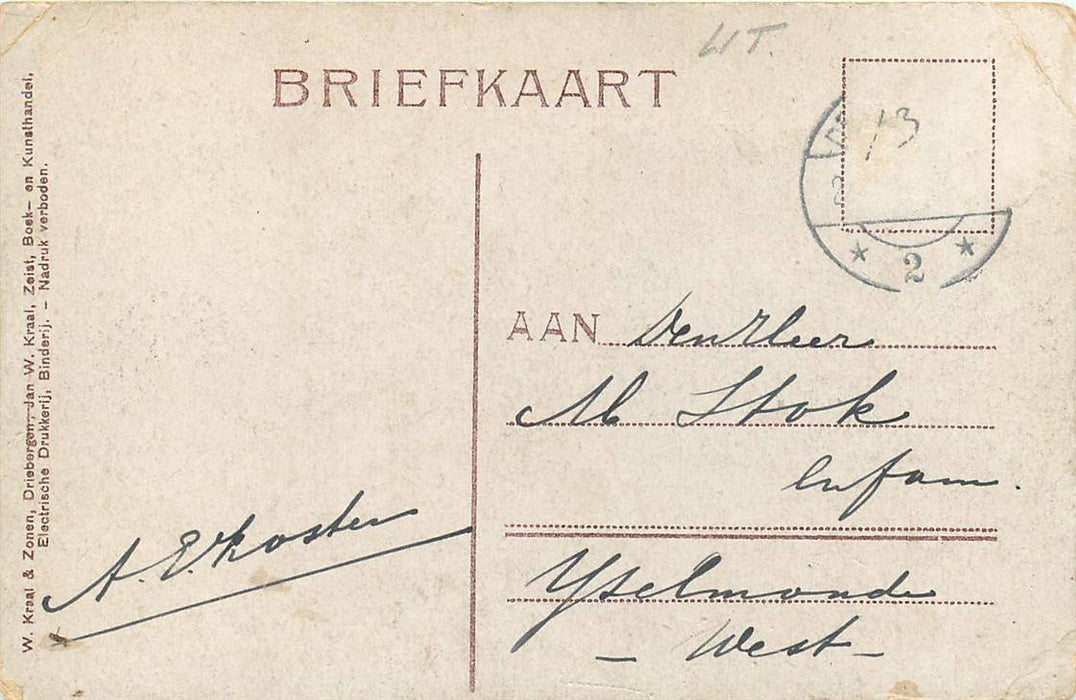 WT.
BRIEFKAART
13
2
AAN Den Heer
M Stok
en fam.
Yselmonde
- West -
A. E. Koster
W. Kraal & Zonen, Driebergen, Jan W. Kraal, Zeist, Boek- en Kunsthandel,
Electrische Drukkerij, Binderij. - Nadruk verboden.